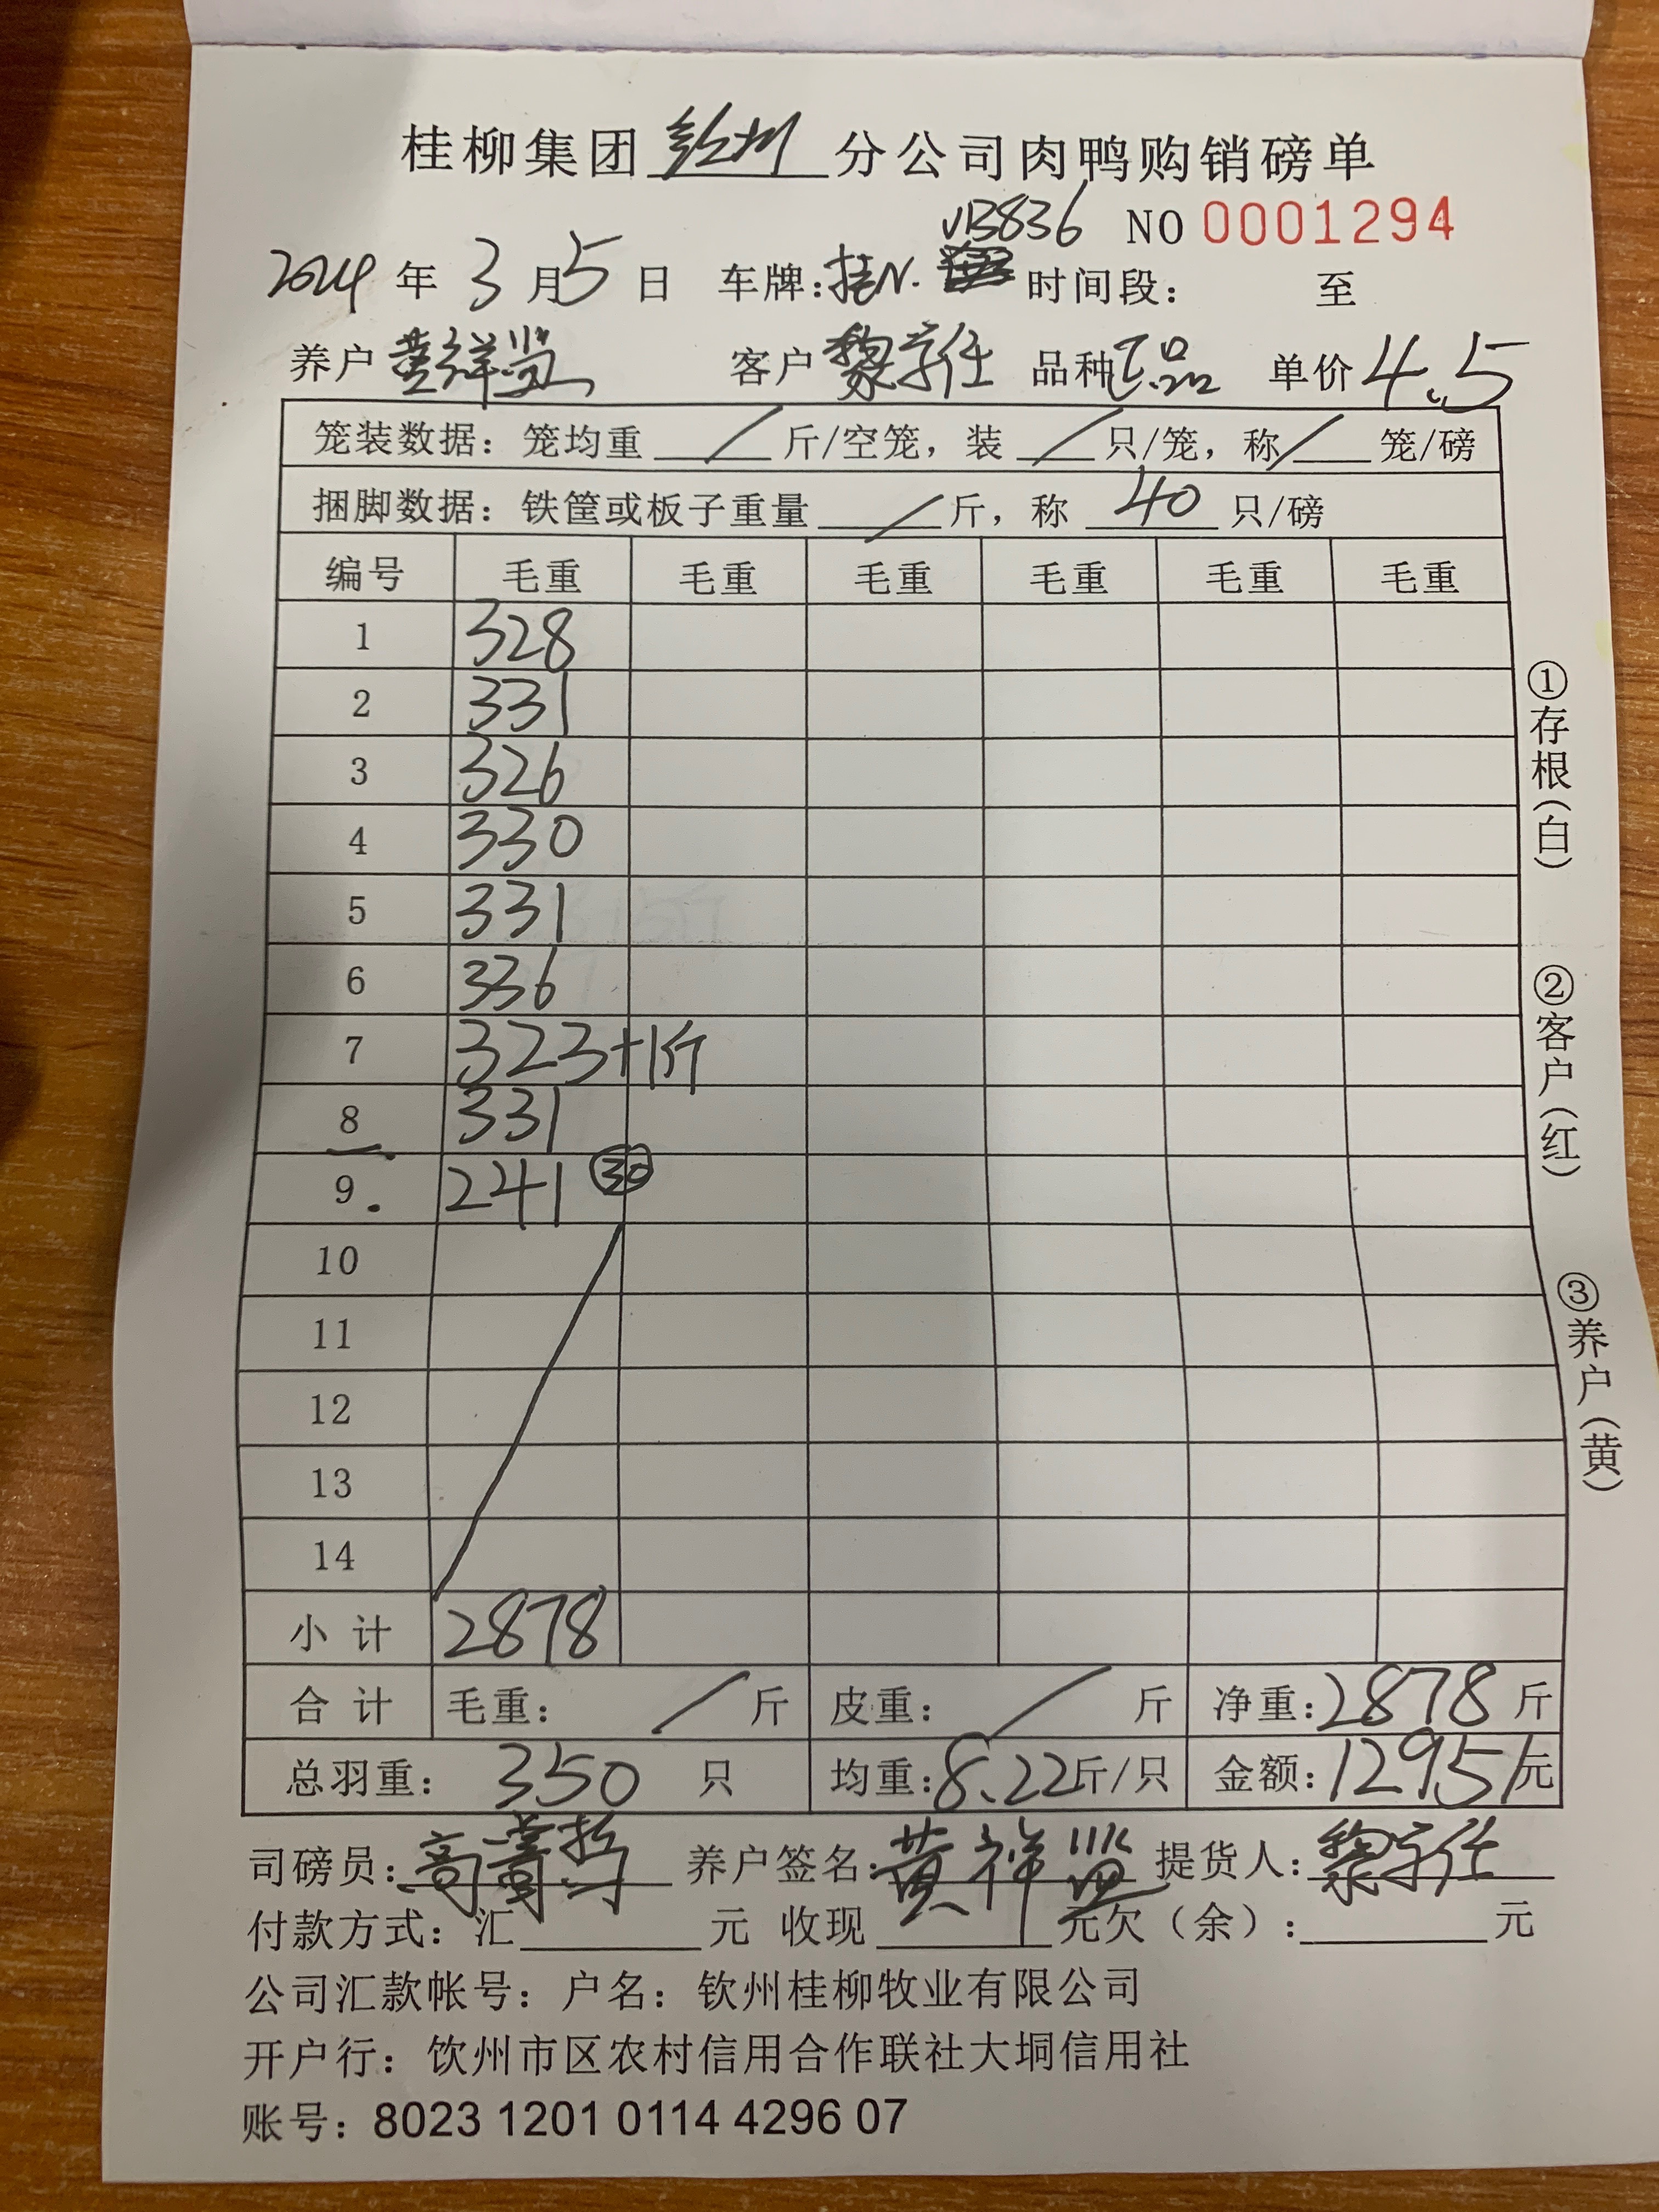 桂柳集团 钦州 分公司肉鸭购销磅单
JB836 NO 0001294
2024 年 3 月 5 日 车牌：桂N. 时间段： 至
养户 黄祥 客户 黎 任 品种 正品 单价 4.5
笼装数据：笼均重 / 斤/空笼，装 / 只/笼，称 / 笼/磅
捆脚数据：铁筐或板子重量 / 斤，称 40 只/磅
编号 毛重 毛重 毛重 毛重 毛重 毛重
1 328
2 331
3 326
4 330
5 331
6 336
7 323+1斤
8 331
9 . 241 30
10
11
12
13
14
小 计 2878
合 计 毛重： / 斤 皮重： / 斤 净重：2878 斤
总羽重： 350 只 均重：8.22斤/只 金额：12951元
司磅员：高 养户签名：黄祥 提货人：黎 任
付款方式：汇 元 收现 元欠（余）： 元
公司汇款帐号：户名：钦州桂柳牧业有限公司
开户行：钦州市区农村信用合作联社大垌信用社
账号：8023 1201 0114 4296 07
①存根（白）
②客户（红）
③养户（黄）